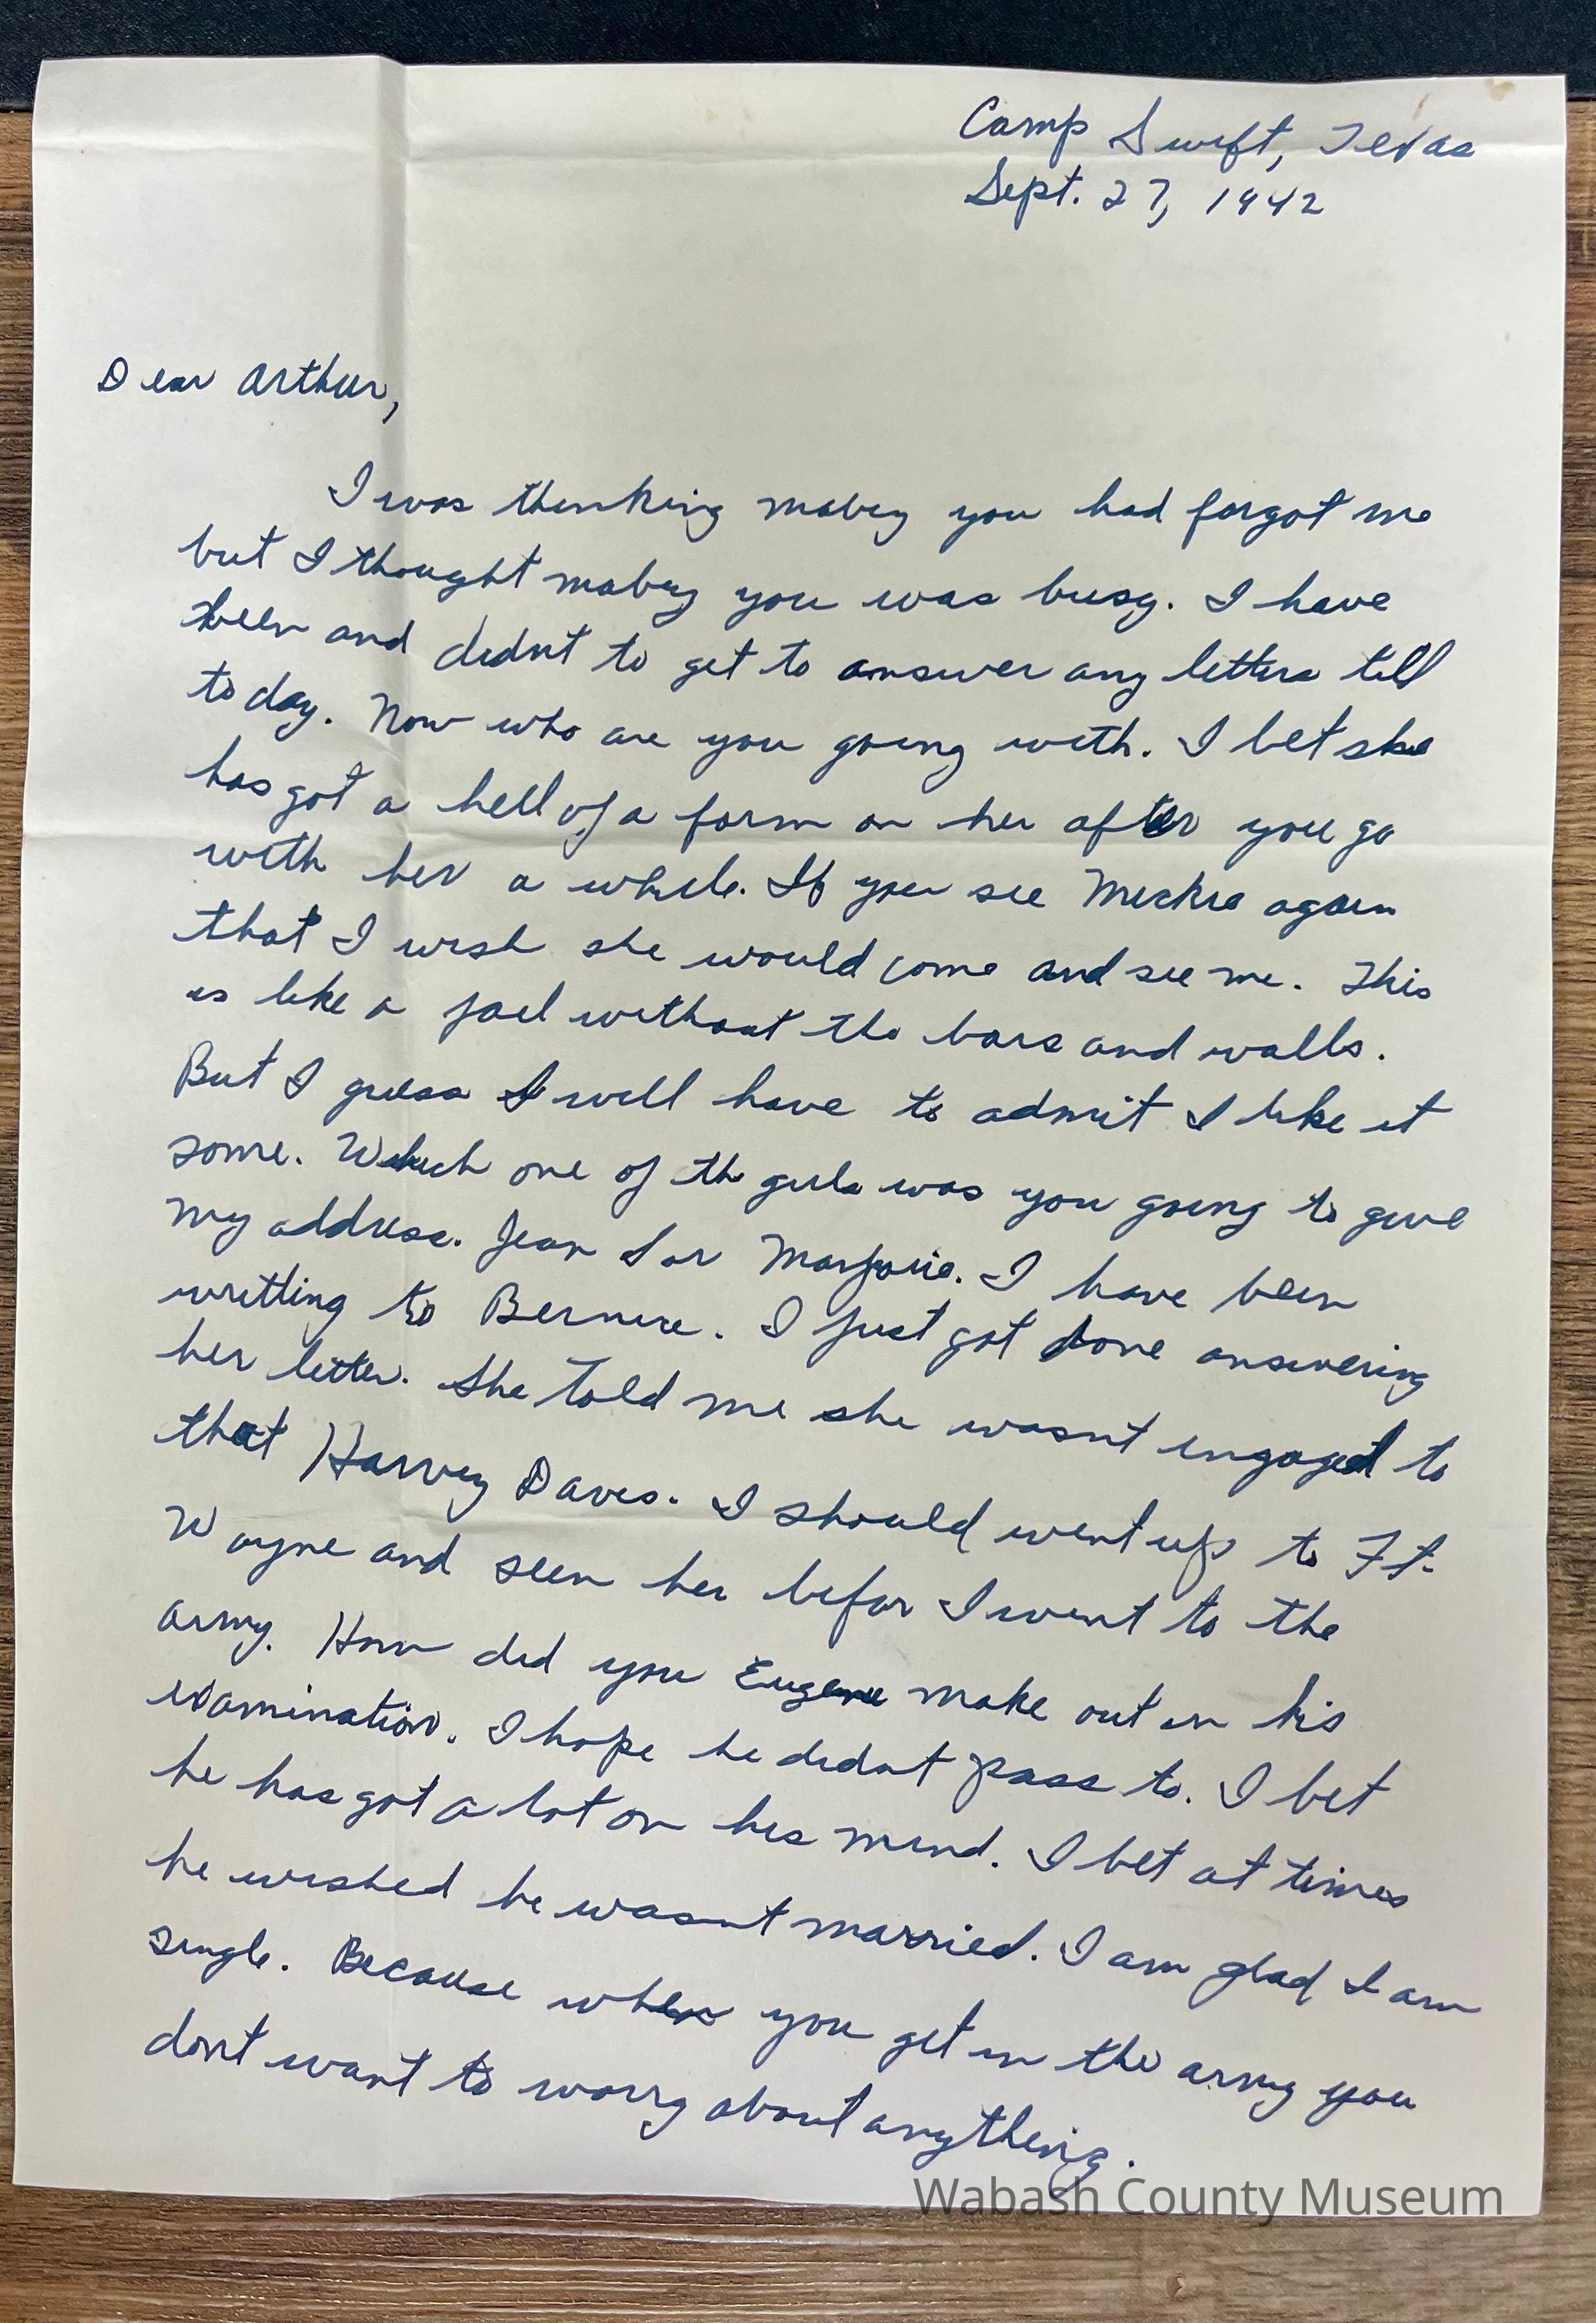 Camp Swift, Texas
Sept. 27, 1942
Dear Arthur,
I was thinking mabey you had forgot me
but I thought mabey you was busy. I have
been and didnt to get to answer any letters till
to day. Now who are you going with. I bet she
has got a hell of a form on her after you go
with her a while. If you see again
that I wish she would come and see me. This
is like a jail without the bars and walls.
But I guess I will have to admit I like it
some. Which one of th girls was you going to give
my address. Jean S or Marjorie. I have been
writting to Bernice. I just got done answering
her letter. She told me she wasnt engaged to
that Harvey Daves. I should went up to Ft.
Wayne and seen her befor I went to the
army. How did you Eugene make out in his
examination. I hope he didnt pass to. I bet
he has got a lot on his mind. I bet at times
he wished he wasnt married. I am glad I am
single. Because when you get in the army you
dont want to worry about anything.
Wabash County Museum